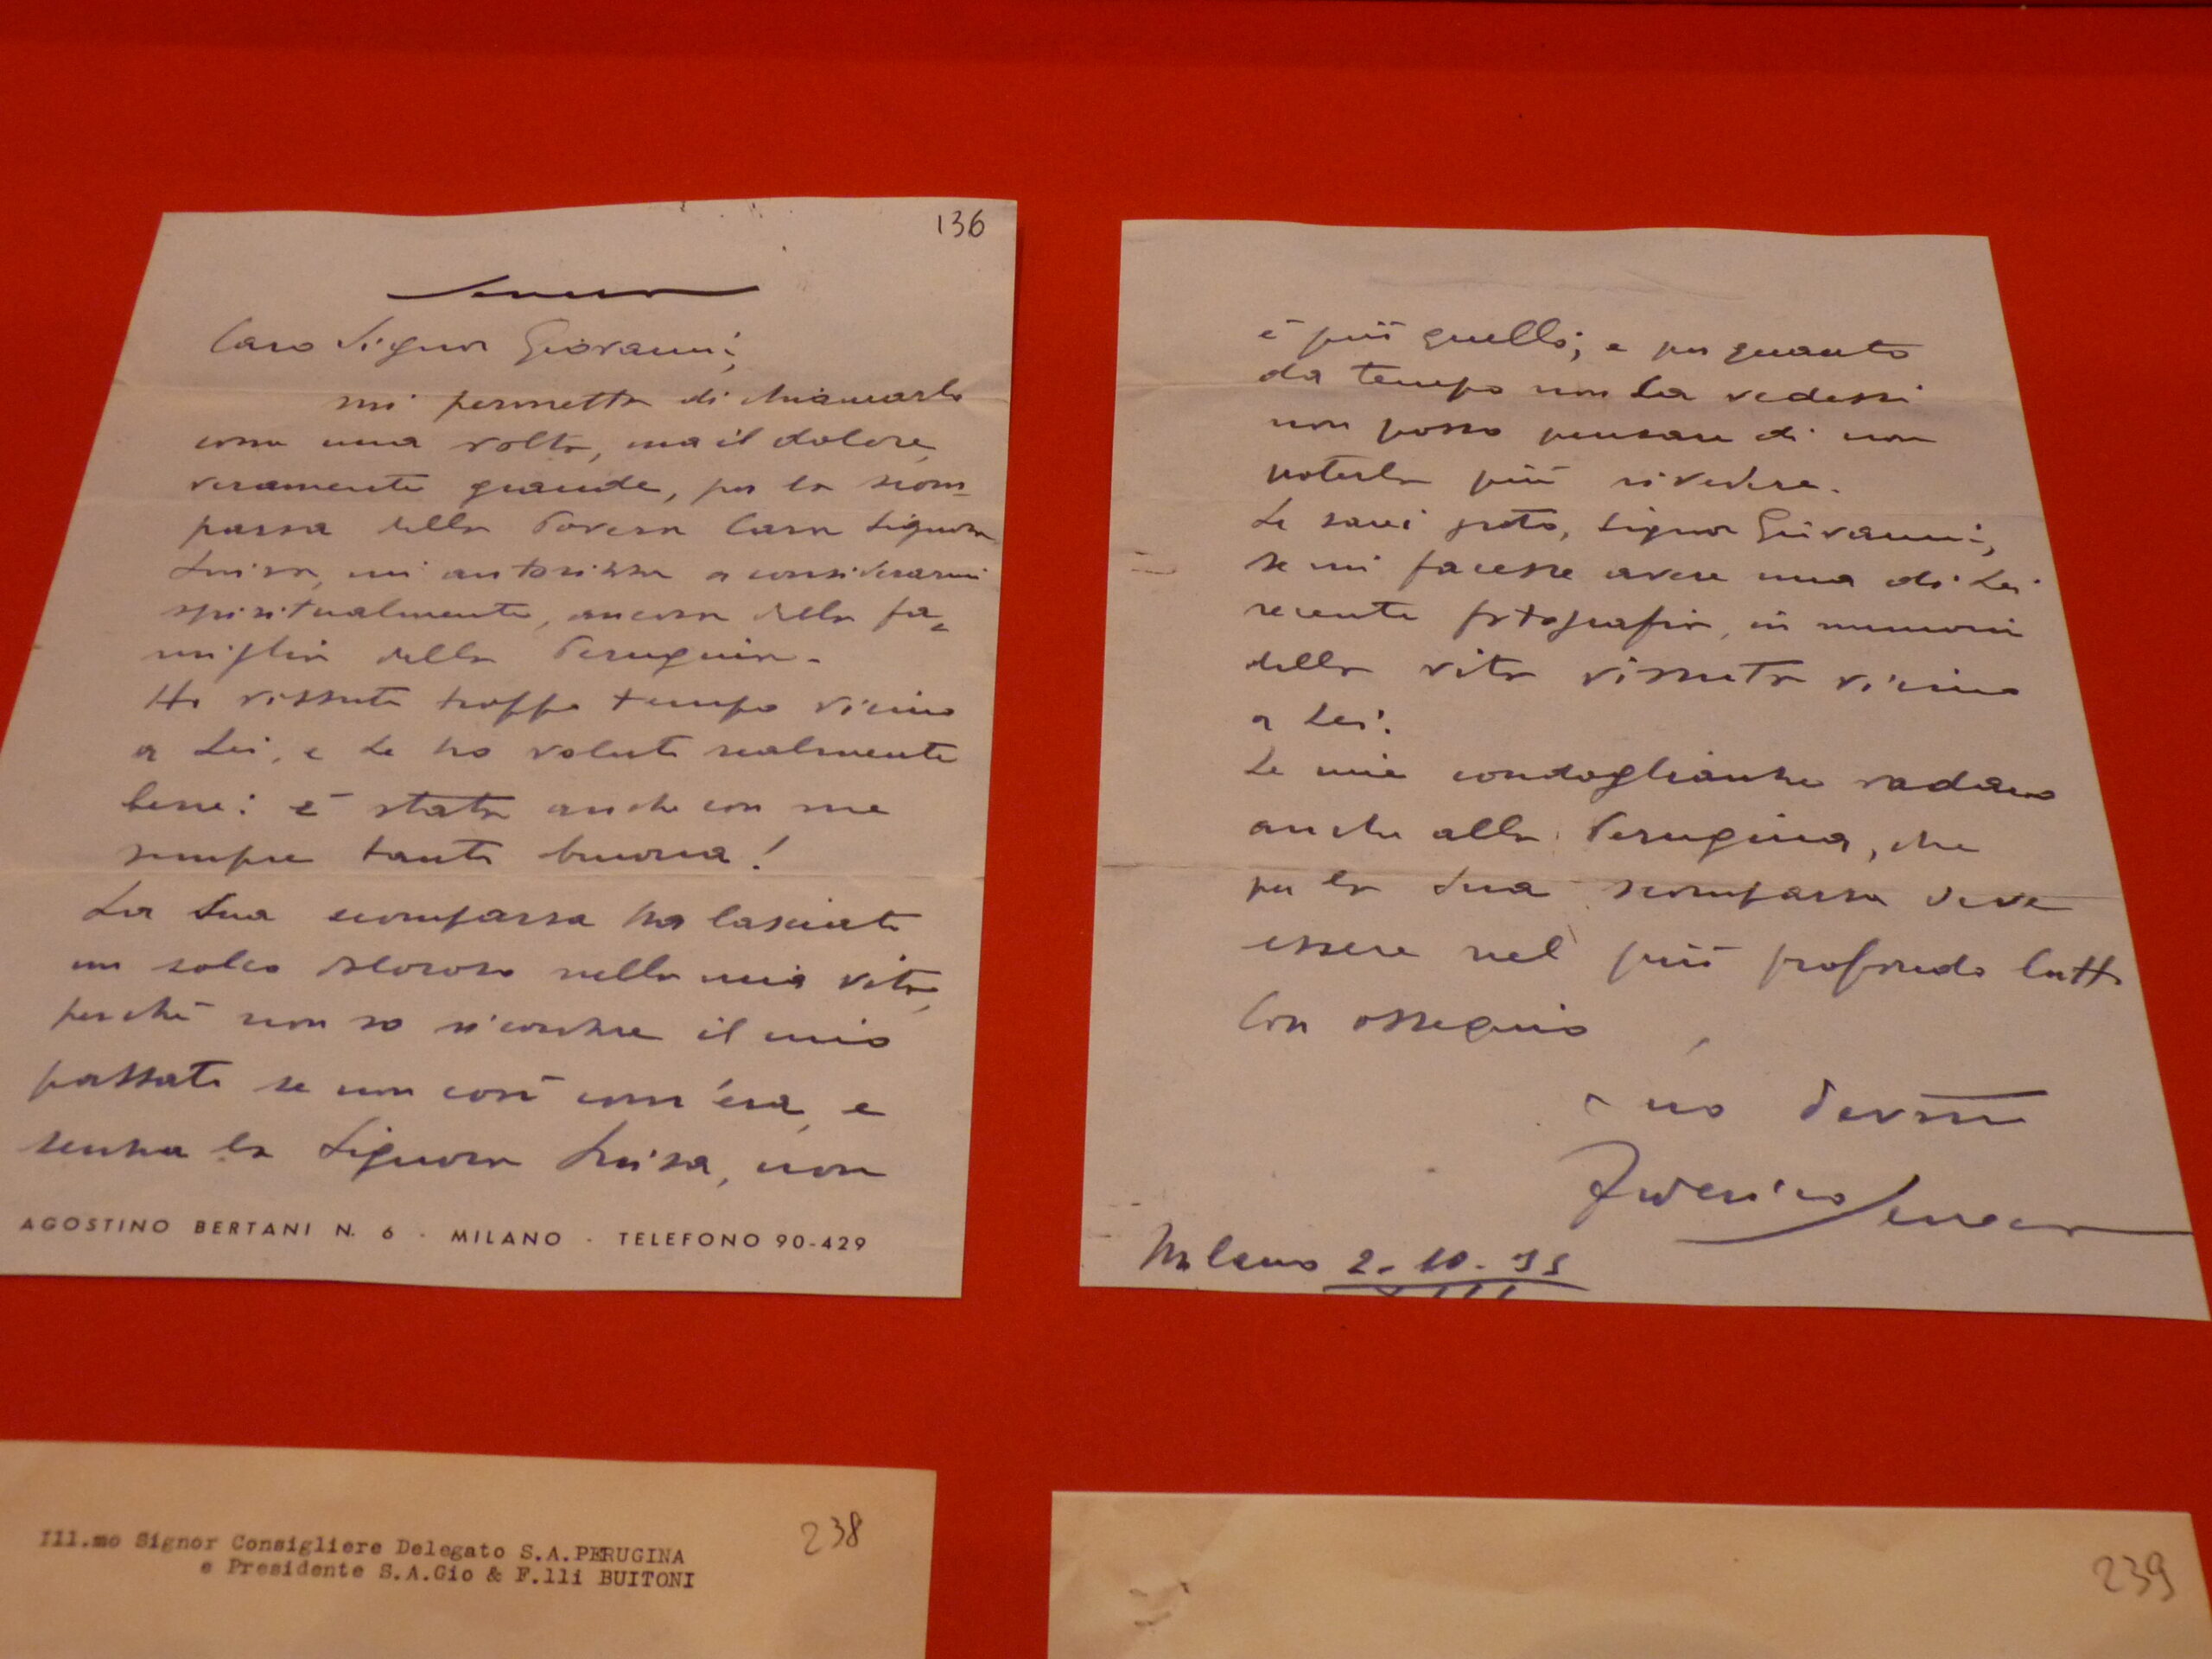 136
Seneca
Caro Signor Giovanni,
mi permetta di chiamarlo
come una volta, ma il dolore,
veramente grande, per la scom-
parsa della Povera Cara Signora
Luisa, mi autorizza a considerarmi
spiritualmente, ancora della fa-
miglia della Perugina.
Ho vissuto troppo tempo vicino
a Lei, e Le ho voluto realmente
bene: è stata anche con me
sempre tanto buona!
La Sua scomparsa ha lasciato
un solco doloroso nella mia vita,
perché non so ricordare il mio
passato se non così com'era, e
senza la Signora Luisa, non
AGOSTINO BERTANI N. 6 · MILANO · TELEFONO 90-429
è più quello; e per quanto
da tempo non La vedessi
non posso pensare di non
poterla più rivedere.
Le sarei grato, Signor Giovanni,
se mi facesse avere una di Lei
recente fotografia, in memoria
della vita vissuta vicino
a Lei.
Le mie condoglianze vadano
anche alla Perugina, che
per la Sua scomparsa deve
essere nel più profondo lutto
Con ossequio
suo devmo
Federico Seneca
Milano 2.10.35
XIII
238
Ill.mo Signor Consigliere Delegato S.A.PERUGINA
e Presidente S.A.Gio & F.lli BUITONI
239